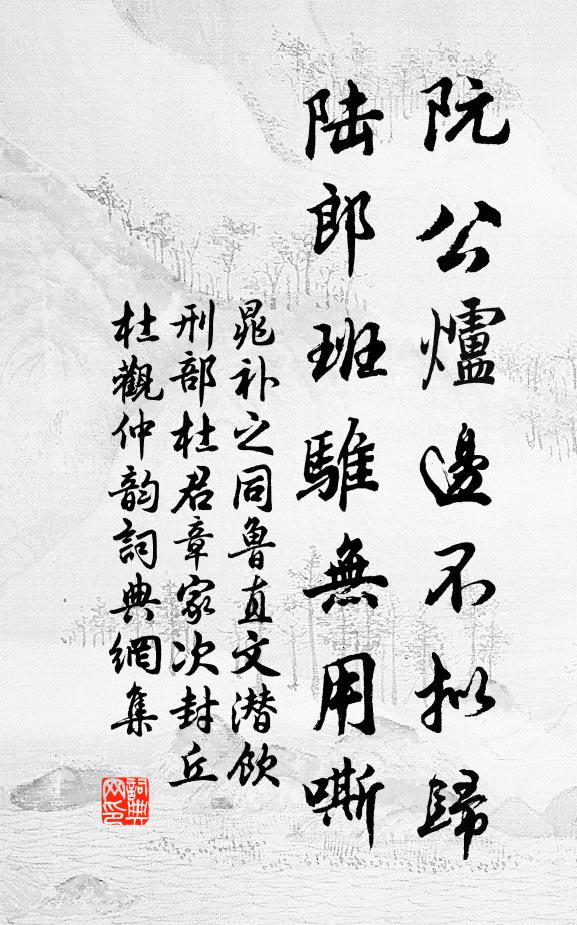 阮公爐邊不拟歸
陆郎班騅無用嘶
晁补之同鲁直文潜飲
刑部杜君章家次封丘
杜觀仲韵詞典網集
詞典网印